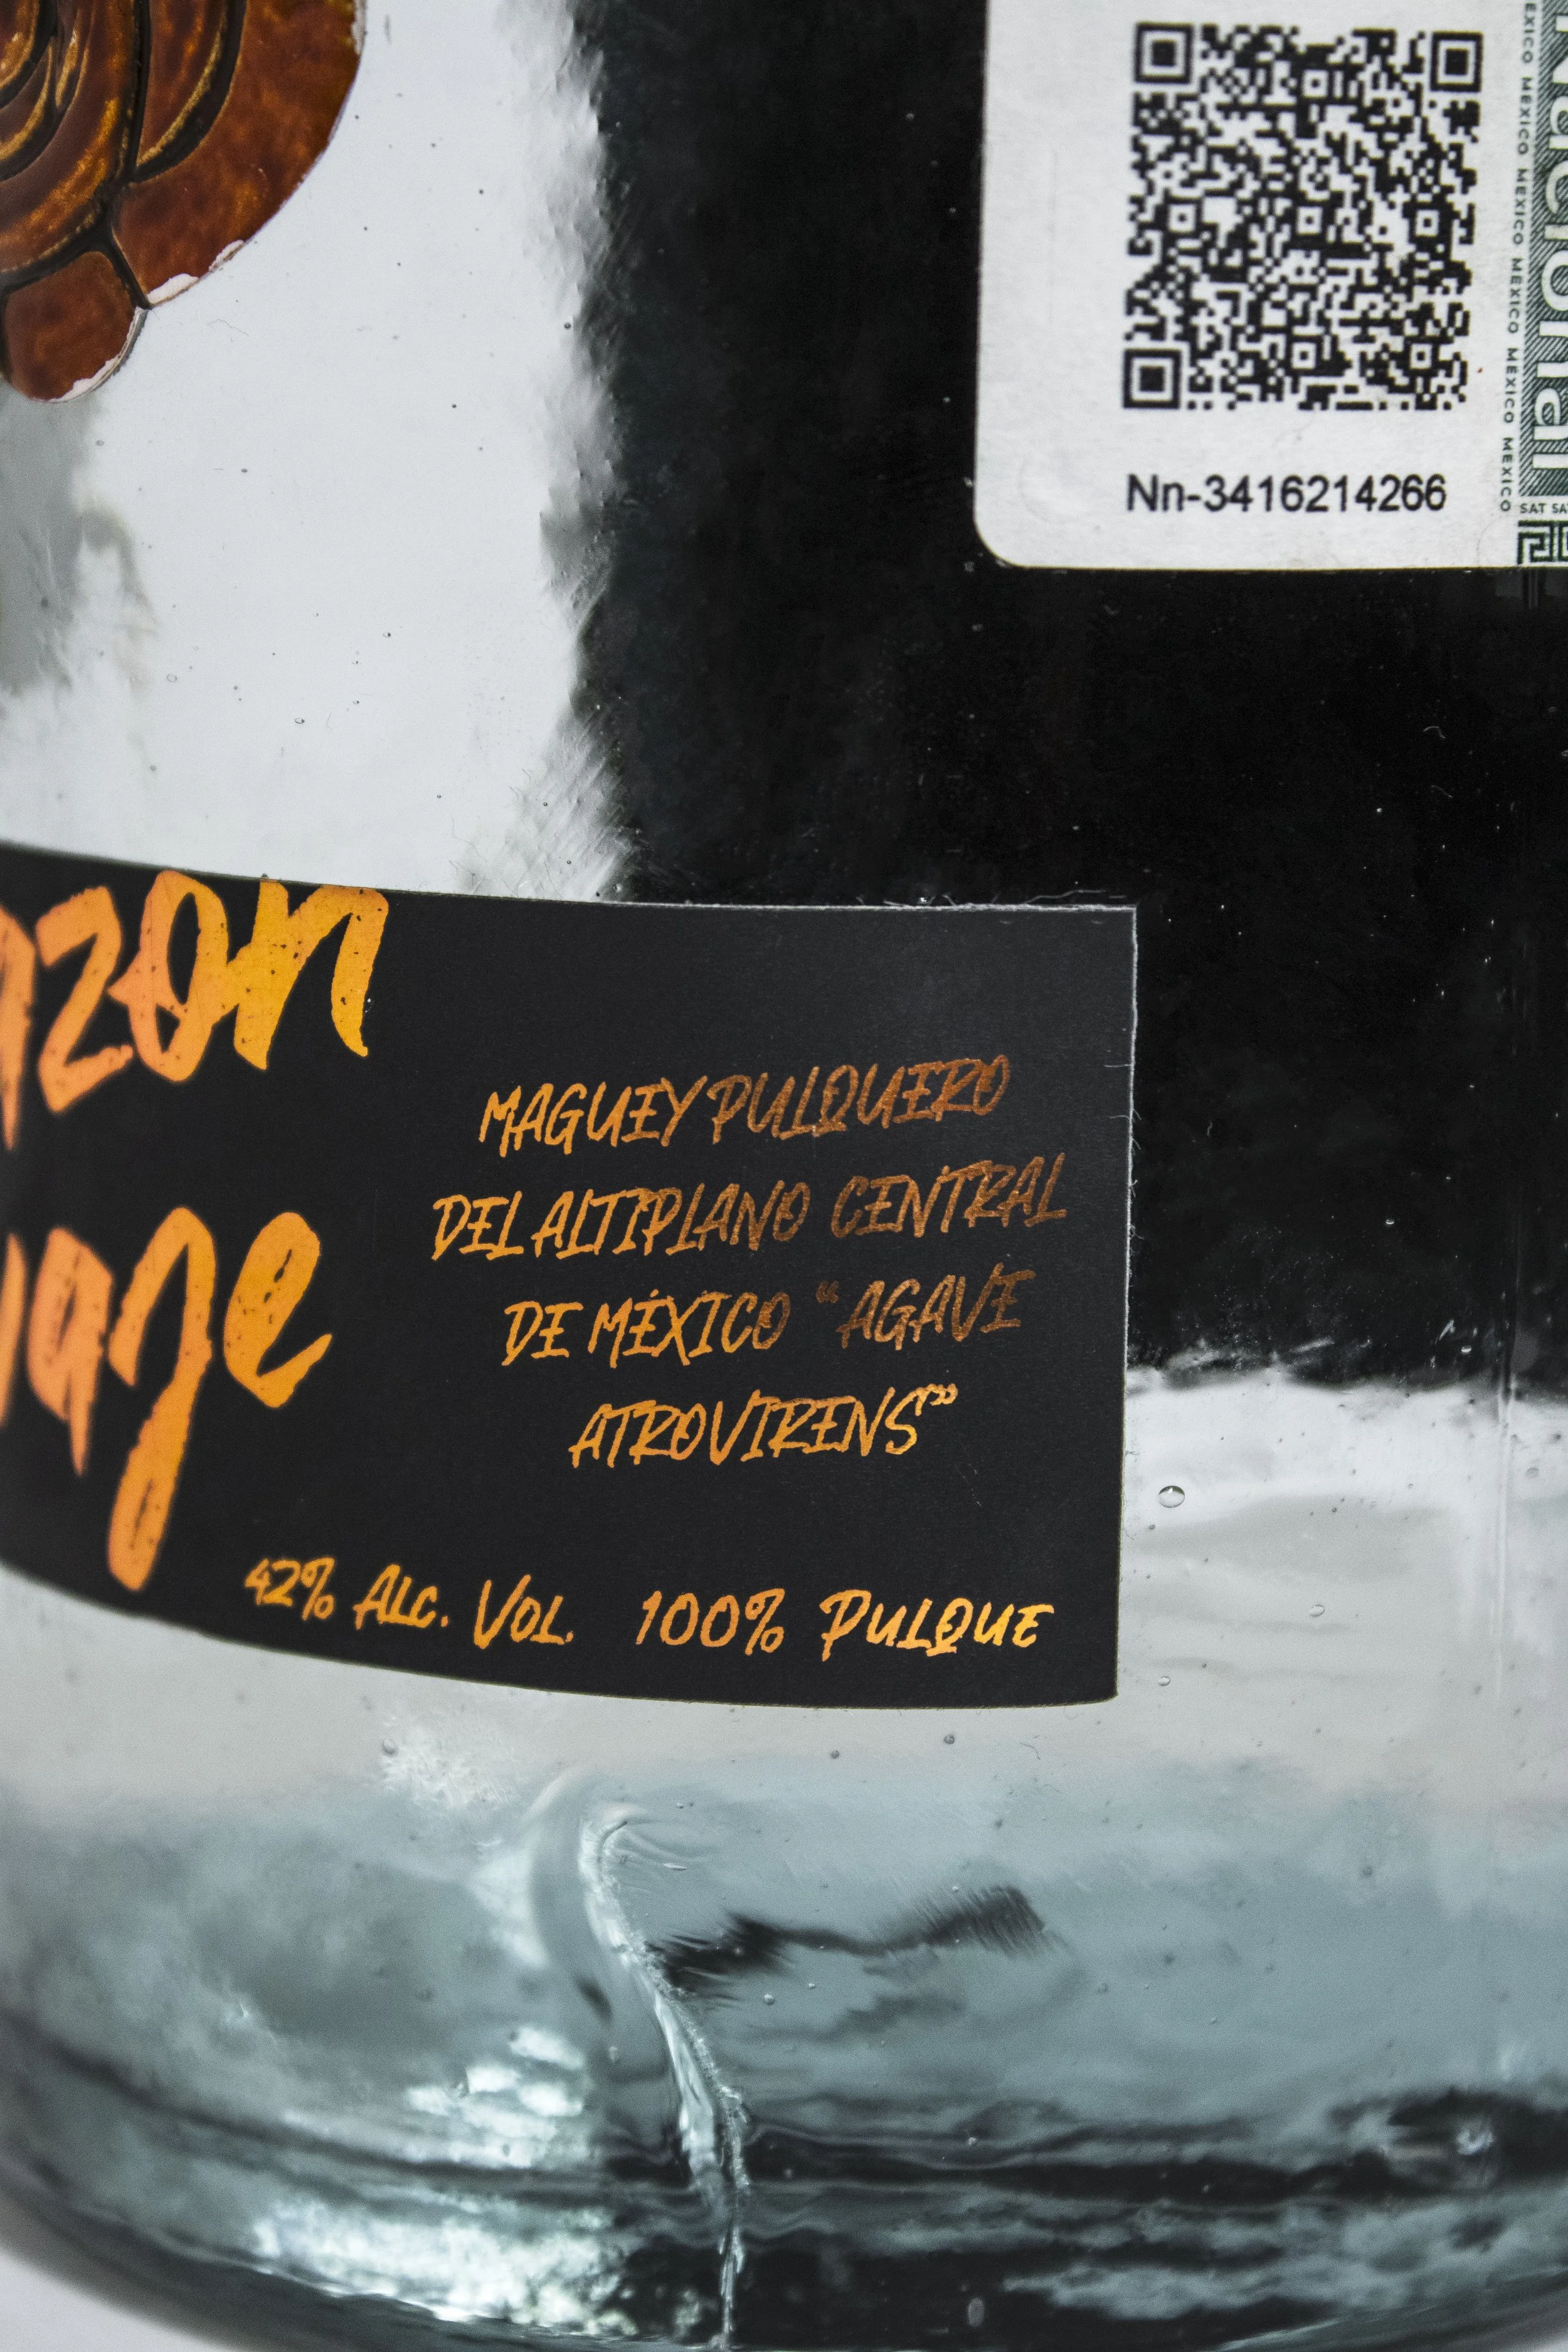 Nn-3416214266
Nacional
MEXICO MEXICO MEXICO MEXICO MEXICO MEXICO
SAT
MAGUEY PULQUERO
DEL ALTIPLANO CENTRAL
DE MÉXICO "AGAVE
ATROVIRENS"
42% ALC. VOL. 100% PULQUE